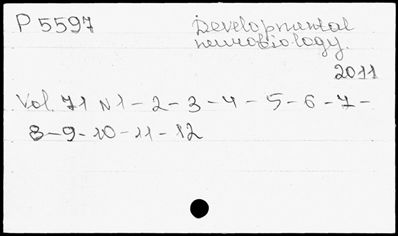 P 5597
Developmental
neurobiology.
2011
Vol. 71 N 1 - 2 - 3 - 4 - 5 - 6 - 7 -
8 - 9 - 10 - 11 - 12